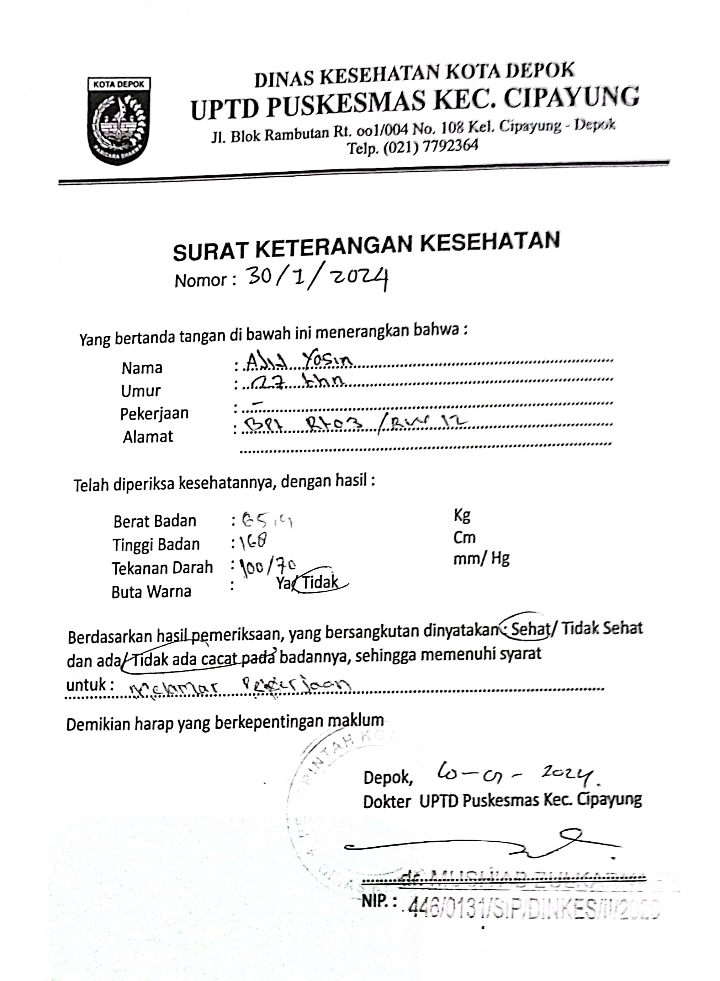 KOTA DEPOK
DINAS KESEHATAN KOTA DEPOK
UPTD PUSKESMAS KEC. CIPAYUNG
Jl. Blok Rambutan Rt. oo1/004 No. 108 Kel. Cipayung - Depok
Telp. (021) 7792364
SURAT KETERANGAN KESEHATAN
Nomor : 30/1/2024
Yang bertanda tangan di bawah ini menerangkan bahwa :
Nama : Yosin
Umur : 27 thn
Pekerjaan : -
Alamat : Rt03 /RW 12
Telah diperiksa kesehatannya, dengan hasil :
Berat Badan : Kg
Tinggi Badan : 168 Cm
Tekanan Darah : 100/70 mm/ Hg
Buta Warna : Ya/ Tidak
Berdasarkan hasil pemeriksaan, yang bersangkutan dinyatakan : Sehat/ Tidak Sehat
dan ada/ Tidak ada cacat pada badannya, sehingga memenuhi syarat
untuk : Melamar Pekerjaan
Demikian harap yang berkepentingan maklum
Depok, 2024
Dokter UPTD Puskesmas Kec. Cipayung
dr.
NIP. : 446/0131/SIP/DINKES/II/2020